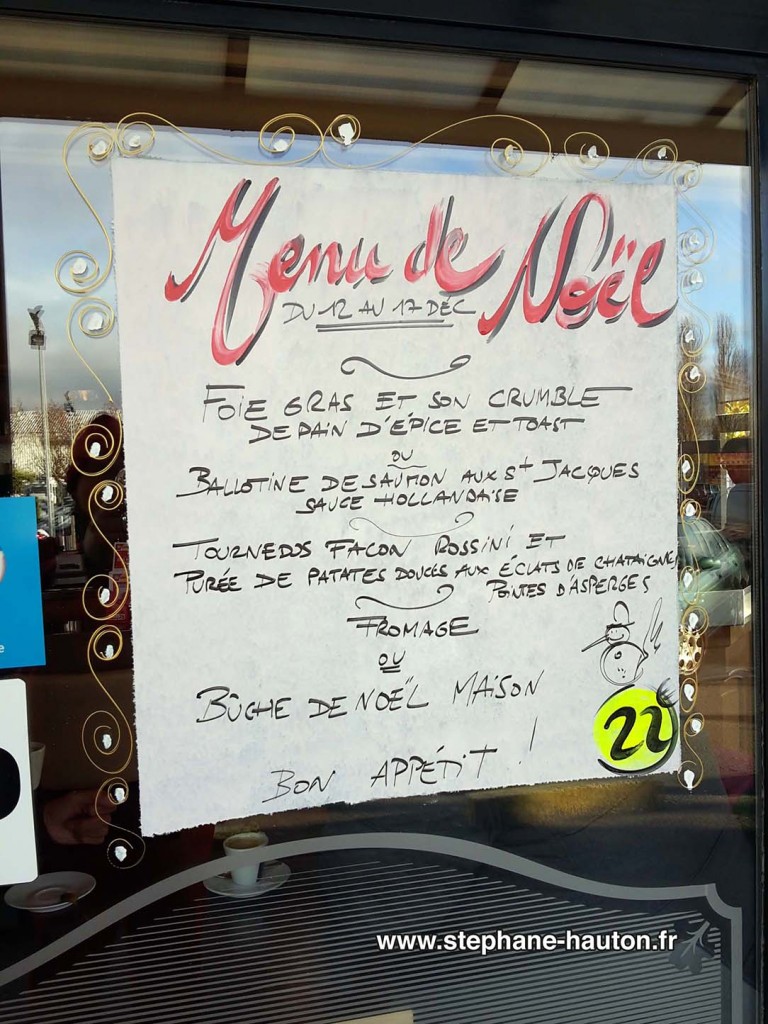 Menu de Noël
DU 12 AU 17 DÉC
FOIE GRAS ET SON CRUMBLE
DE PAIN D'ÉPICE ET TOAST
OU
BALLOTINE DE SAUMON AUX St JACQUES
SAUCE HOLLANDAISE
TOURNEDOS FACON ROSSINI ET
PURÉE DE PATATES DOUCES AUX ÉCLATS DE CHATAIGNE
POINTES D'ASPERGES
FROMAGE
OU
BÛCHE DE NOËL MAISON
22€
BON APPÉTIT !
www.stephane-hauton.fr